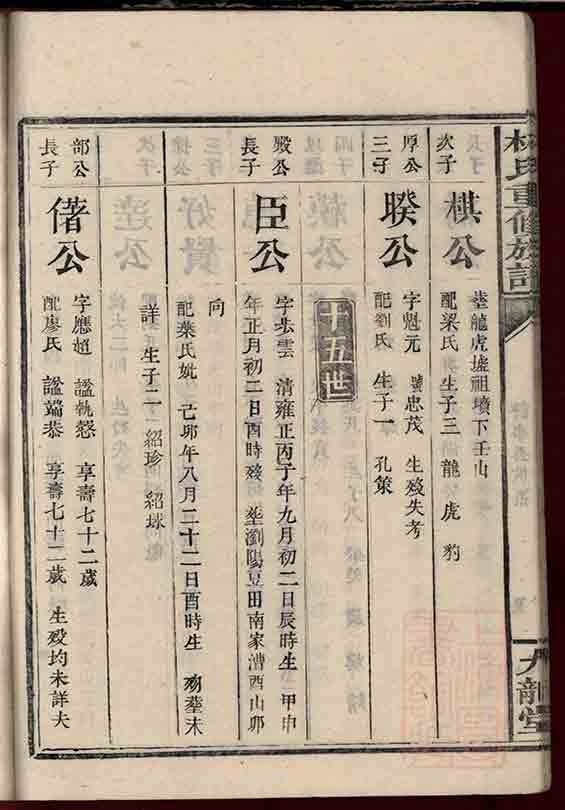 林氏重修族譜
九龍堂
塟龍虎墟祖墳下壬山
次子
棋公
配梁氏 生子三 龍 虎 豹
厚公
三子
睽公
字魁元 號忠茂 生殁失考
配劉氏 生子一 孔策
十五世
殿公
長子
臣公
字步雲 清雍正丙子年九月初二日辰時生 甲申
年正月初二日酉時殁 塟瀏陽豆田南家漕酉山卯
向
配葉氏妣 己卯年八月二十二日酉時生 殁塟未
詳 生子二 紹珍 紹球
部公
長子
偖公
字應超 諡執慤 享壽七十二歲
配廖氏 諡端恭 享壽七十二歲 生殁均未詳夫